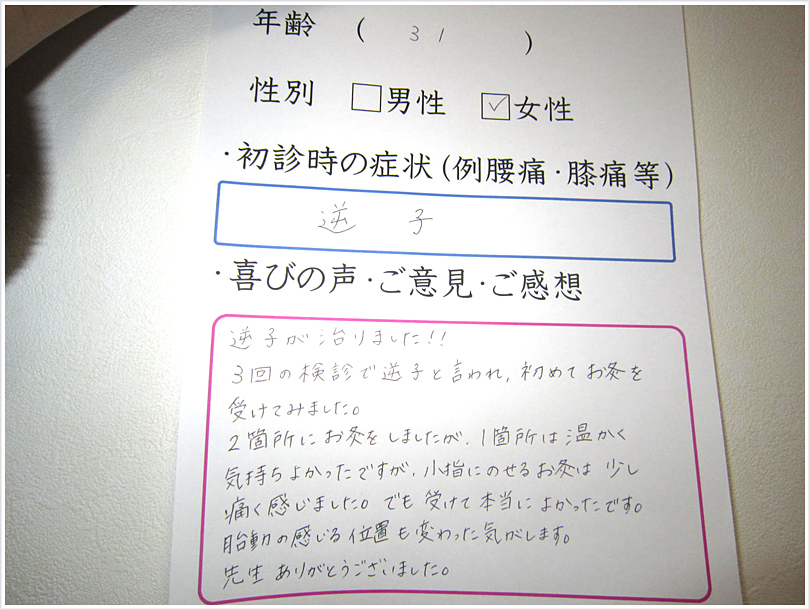 年齢 ( 31 )
性別 □男性 ☑女性
・初診時の症状(例腰痛・膝痛等)
逆子
・喜びの声・ご意見・ご感想
逆子が治りました!!
3回の検診で逆子と言われ、初めてお灸を
受けてみました。
2箇所にお灸をしましたが、1箇所は温かく
気持ちよかったですが、小指にのせるお灸は少し
痛く感じました。でも受けて本当によかったです。
胎動の感じる位置も変わった気がします。
先生ありがとうございました。